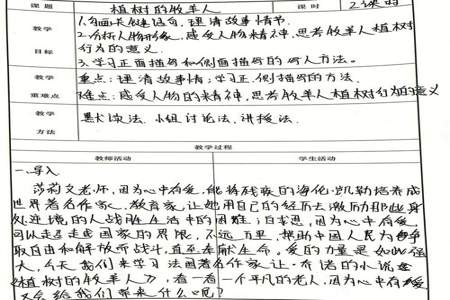 课 题 植树的牧羊人 课 时 2课时
1.勾画关键语句，理清故事情节.
教学 2.分析人物形象，感受人物精神，思考牧羊人植树
目标 行为的意义.
3.学习正面描写和侧面描写的写人方法。
教学 重点：理清故事情；学习正、侧描写的方法.
重难点 难点：感受人物的精神，思考牧羊人植树行为的意义
教学 默读法.小组讨论法，讲授法.
方法
教学过程
教师活动 学生活动
一.导入
莎莉文老师，因为心中有爱，能将残疾的海伦·凯勒培养成
世界著名作家、教育家，让她用自己的经历去激励那些身
处逆境的人战胜生活中的困难；白求恩，因为心中有爱，
可以走 国家的界限，不远万里，帮助中国人民为争
取自由和解放所战斗，直至奉献生命。爱的力量是如此强
大，今天我们来学习法国著名作家让·乔诺的小说
《植树的牧羊人》，看一看一个平凡的老人，因为心中有爱
又会给我们带来什么呢？